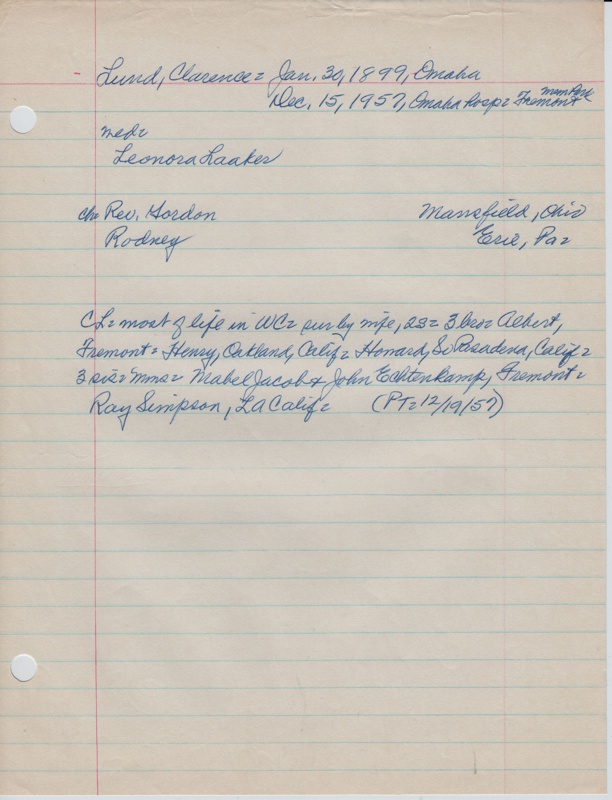 Lund, Clarence = Jan. 30, 1899, Omaha
Dec. 15, 1957, Omaha hosp = Fremont Mem Park
med =
Leonora Laaker
ch = Rev. Gordon Mansfield, Ohio
Rodney Erie, Pa =
CL = most of life in WC = sur by wife, 2s = 3 bro = Albert,
Fremont = Henry, Oakland, Calif = Howard, So Pasadena, Calif =
3 sis = Mmes = Mabel Jacob & John Echtenkamp, Fremont =
Ray Simpson, LA Calif = (PT = 12/19/57)